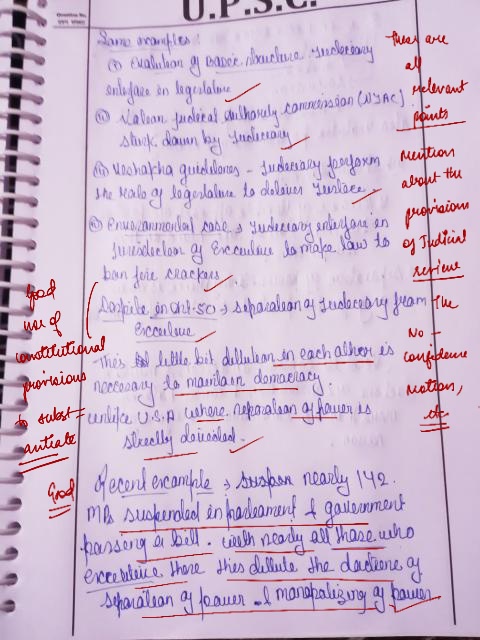 U.P.S.C.
Some examples :
(i) Evalution of Basic structure Judeciary
enterfare in legeslature
(ii) Nalean Judecal authoraty commession (NJAC)
struk dawn by Judeciary
(iii) Veshapha guidelenes - Judeciary perform
the Role of legeslature to deliver Justice
(iv) Enveronmental case, Judeciary enterfare in
Jurisdection of Excculeve to make law to
ban fire crackers
Despite in Art-50 → separalean of Judeceary fram
Exculeve
This lettle bit dellutean in each alher is
neccesary to mantain democracy.
unlike U.S.A where separalean of power is
strectly devieded.
Recent example → suspan nearly 142.
MPs suspended in parleament & gavernment
passeng a bill. weth nearly all those who
excculeve there thes dellute the doctrene of
separalean of pawer & manapalizeng of pawer
These are
all
relevant
points
Mention
about the
provisions
of Judicial
review
The
No -
confidence
Motion,
etc
Good
use of
constitutional
provisions
to subst-
antiate
Good